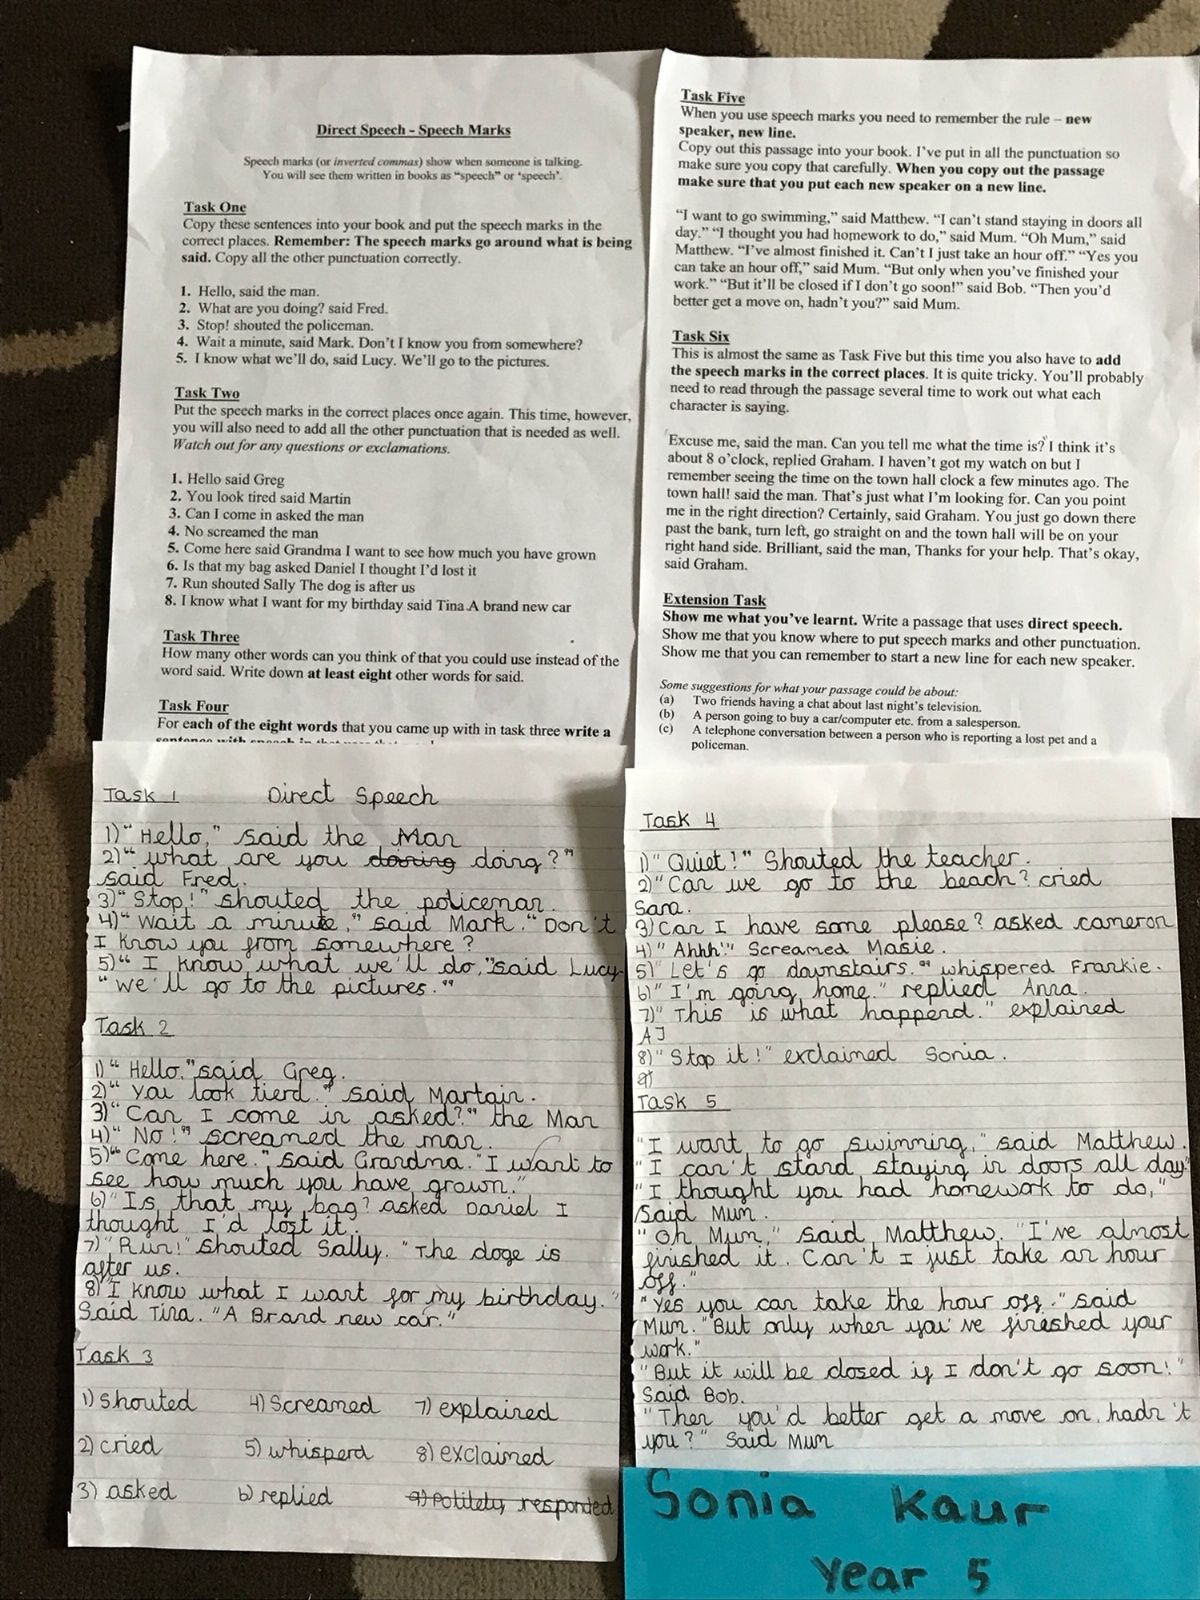 Direct Speech - Speech Marks
Speech marks (or inverted commas) show when someone is talking.
You will see them written in books as “speech” or ‘speech’.
Task One
Copy these sentences into your book and put the speech marks in the
correct places. Remember: The speech marks go around what is being
said. Copy all the other punctuation correctly.
1. Hello, said the man.
2. What are you doing? said Fred.
3. Stop! shouted the policeman.
4. Wait a minute, said Mark. Don’t I know you from somewhere?
5. I know what we’ll do, said Lucy. We’ll go to the pictures.
Task Two
Put the speech marks in the correct places once again. This time, however,
you will also need to add all the other punctuation that is needed as well.
Watch out for any questions or exclamations.
1. Hello said Greg
2. You look tired said Martin
3. Can I come in asked the man
4. No screamed the man
5. Come here said Grandma I want to see how much you have grown
6. Is that my bag asked Daniel I thought I’d lost it
7. Run shouted Sally The dog is after us
8. I know what I want for my birthday said Tina A brand new car
Task Three
How many other words can you think of that you could use instead of the
word said. Write down at least eight other words for said.
Task Four
For each of the eight words that you came up with in task three write a
Task Five
When you use speech marks you need to remember the rule – new
speaker, new line.
Copy out this passage into your book. I’ve put in all the punctuation so
make sure you copy that carefully. When you copy out the passage
make sure that you put each new speaker on a new line.
“I want to go swimming,” said Matthew. “I can’t stand staying in doors all
day.” “I thought you had homework to do,” said Mum. “Oh Mum,” said
Matthew. “I’ve almost finished it. Can’t I just take an hour off.” “Yes you
can take an hour off,” said Mum. “But only when you’ve finished your
work.” “But it’ll be closed if I don’t go soon!” said Bob. “Then you’d
better get a move on, hadn’t you?” said Mum.
Task Six
This is almost the same as Task Five but this time you also have to add
the speech marks in the correct places. It is quite tricky. You’ll probably
need to read through the passage several time to work out what each
character is saying.
Excuse me, said the man. Can you tell me what the time is? I think it’s
about 8 o’clock, replied Graham. I haven’t got my watch on but I
remember seeing the time on the town hall clock a few minutes ago. The
town hall! said the man. That’s just what I’m looking for. Can you point
me in the right direction? Certainly, said Graham. You just go down there
past the bank, turn left, go straight on and the town hall will be on your
right hand side. Brilliant, said the man, Thanks for your help. That’s okay,
said Graham.
Extension Task
Show me what you’ve learnt. Write a passage that uses direct speech.
Show me that you know where to put speech marks and other punctuation.
Show me that you can remember to start a new line for each new speaker.
Some suggestions for what your passage could be about:
(a) Two friends having a chat about last night’s television.
(b) A person going to buy a car/computer etc. from a salesperson.
(c) A telephone conversation between a person who is reporting a lost pet and a
policeman.
Task 1 Direct Speech
1) “Hello,” said the Man
2) “what are you doiring doing?”
said Fred.
3) “Stop!” shouted the policeman.
4) “Wait a minute,” said Mark. “Don’t
I know you from somewhere?
5) “I know what we’ll do,” said Lucy.
“we’ll go to the pictures.”
Task 2
1) “Hello.” said Greg.
2) “You look tierd.” said Martain.
3) “Can I come in asked?” the Man
4) “No!” screamed the man.
5) “Come here.” said Grandma. “I want to
see how much you have grown.”
6) “Is that my bag? asked Daniel I
thought I’d lost it.
7) “Run!” shouted Sally. “The doge is
after us.
8) “I know what I want for my birthday.”
Said Tina. “A Brand new car.”
Task 3
1) shouted 4) Screamed 7) explained
2) cried 5) whisperd 8) exclaimed
3) asked 6) replied 9) Politely responded
Task 4
1) “Quiet!” Shouted the teacher.
2) “Can we go to the beach? cried
Sara.
3) Can I have some please? asked cameron
4) “Ahhh!” Screamed Masie.
5) “Let’s go downstairs.” whispered Frankie.
6) “I’m going home.” replied Anna.
7) “This is what happend.” explained
AJ
8) “Stop it!” exclaimed Sonia.
9)
Task 5
“I want to go swimming,” said Matthew.
“I can’t stand staying in doors all day”
“I thought you had homework to do,”
said Mum.
“Oh Mum,” said Matthew. “I’ve almost
finished it. Can’t I just take an hour
off.”
“Yes you can take the hour off.” said
Mum. “But only when you’ve fineshed your
work.”
“But it will be closed if I don’t go soon!”
Said Bob.
“Then you’d better get a move on, hadn’t
you?” Said Mum
Sonia Kaur
Year 5